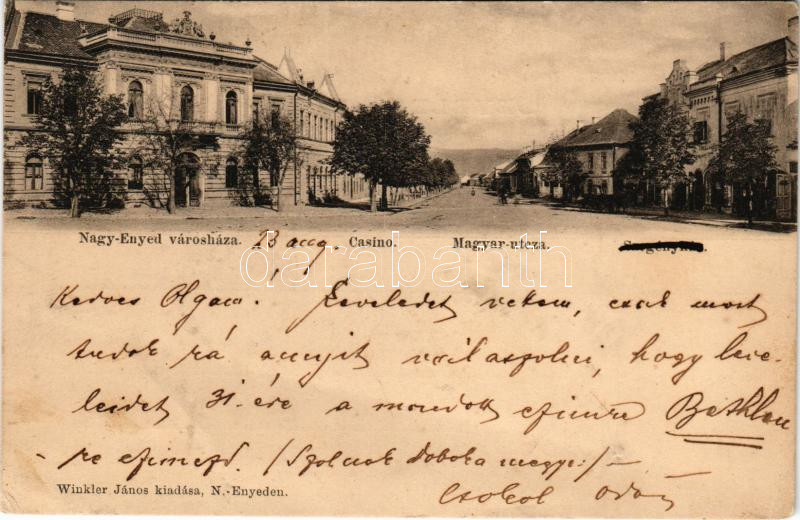 Nagy-Enyed városháza. 13 aug. Casino. Magyar-utcza.
darabanth
Kedves Olgam! Leveledet vettem, csak most
tudok rá annyit válaszolni, hogy leve-
leidet 31. ére a mondott czimre Bethlen
-re czimezd. (Szolnok Doboka megye:)-
Csokol Ödön
Winkler János kiadása, N.-Enyeden.